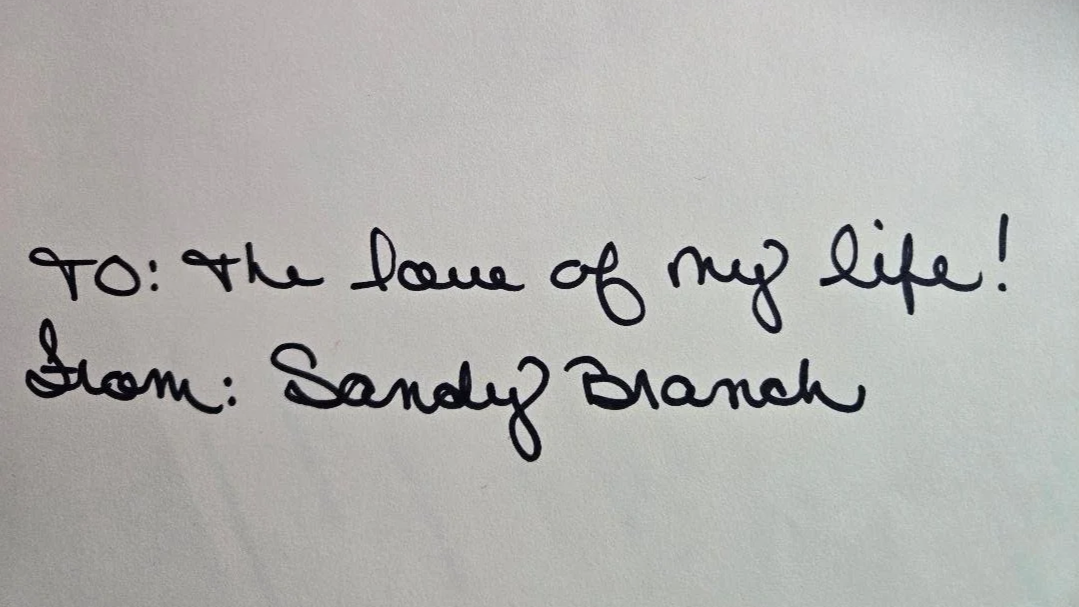 TO: The love of my life!
From: Sandy Branch